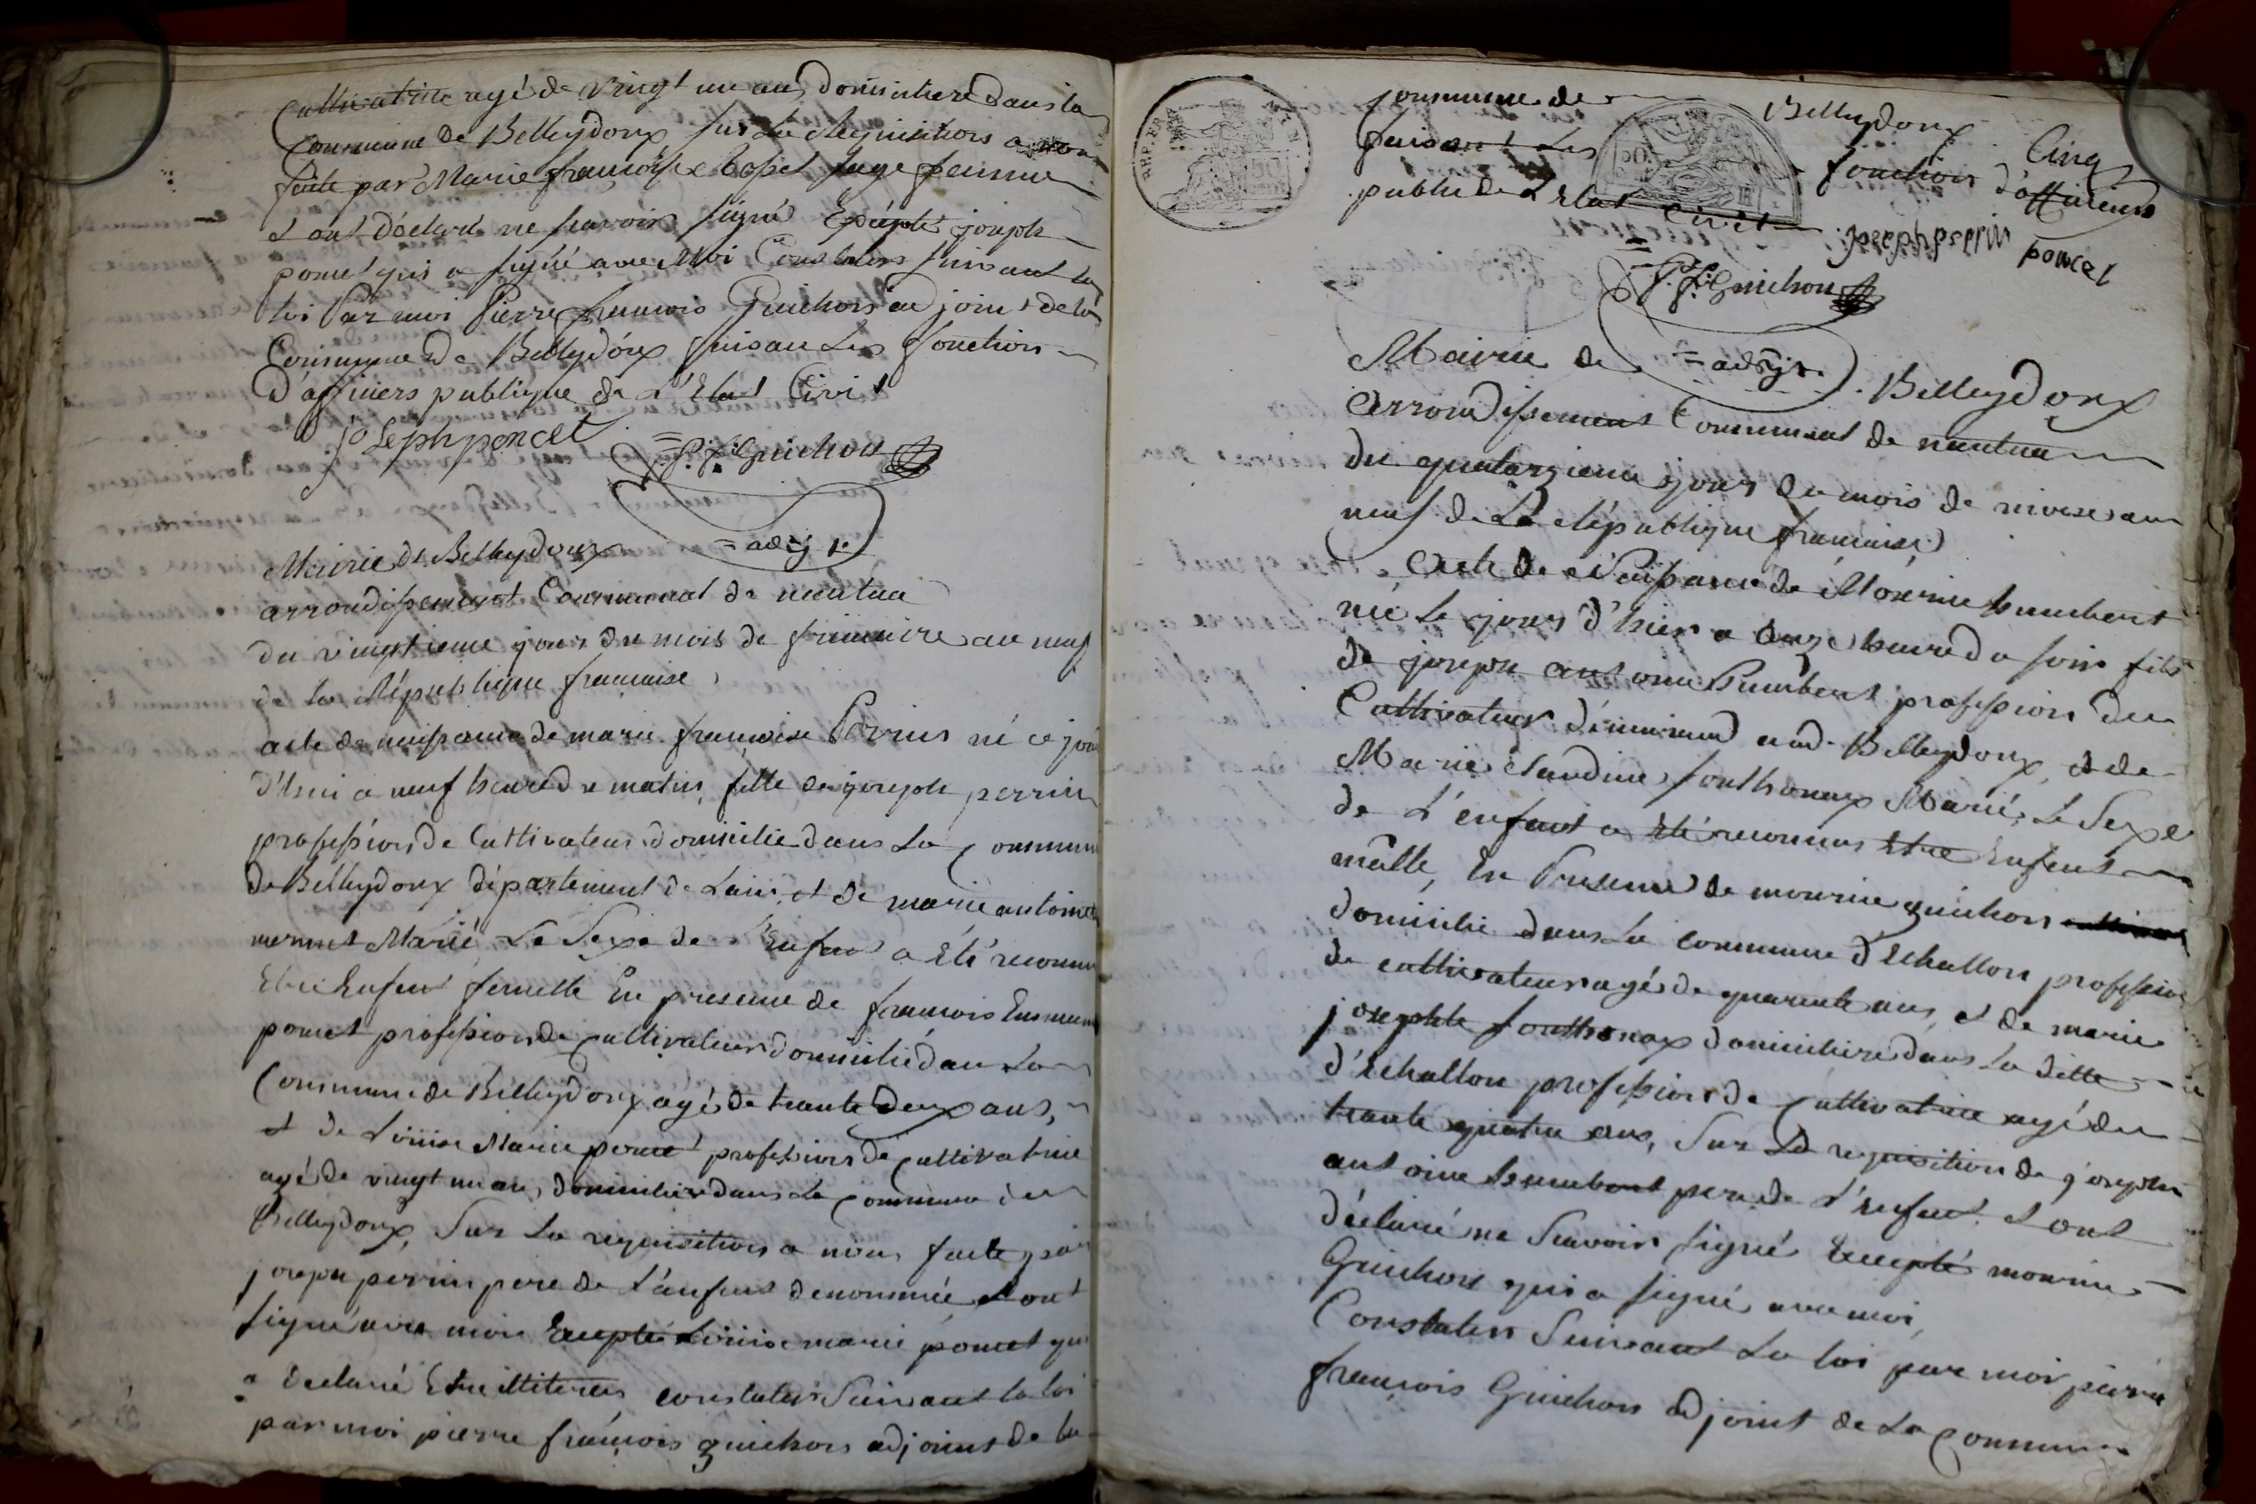 Cultivatrice agé de vingt un ans Domiciliere Dans la
Commune de Belleydoux sur La Requisitions a nous
faite par Marie françoise Sage femme
et ont Déclaré ne scavoir signé Excépté joseph
poncet qui a signé avec Moi Constaters suivant la
loi Par moi Pierre françois Guichon ad joint de la
Commune De Belleydoux faisant Les fonction
D'affiniers publique de L'Etat Civil
joseph poncet P. F. Guichon
= adjt
Mairie de Belleydoux
arrondissement Communal de nantua
du vingtieme jour du mois de frimaire an neuf
de la République française,
acte de naissance de marie françoise Perrin né ce jour
d'hui a neuf heure du matin, fille de joseph perrin
profession de Cultivateur domicilié dans La Commune
de Belleydoux département de Lain, et de marie antoinette
mermet Marié, Le Sexe de L'enfant a Eté reconnu
Etre Enfant femelle En presence de françois Emmanuel
poncet profession de Cultivateur domicilié dans La
Commune de Belleydoux agé de trante Deux ans,
et de Louise Marie poncet profession de Cultivatrice
agé de vingt un ans, domiciliere dans La Commune de
Belleydoux, Sur La requisition a nous faite par
joseph perrin pere de L'enfant denommée et ont
signé avec moi Excepté Louise marie poncet qui
a declaré Etre illiterée, constater Suivant la loi
par moi pierre françois guichon adjoint de la
Commune de Belleydoux Cinq
faisant Les fonction d'afficiers
public de L'Etat Civil
joseph perrin poncet
P. F. Guichon
= adjt
Mairie de Belleydoux
Arrondissement Communal de nantua
du quatorzieme jour du mois de nivose an
neuf de La République françaisé
Acte de Naissance de Maxerie humbert
né Le jour d'hier a onze heure du soir fils
de joseph antoine humbert profession de
Cultivateur démeurant aud. Belleydoux, et de
Marie Claudine fonthonax Marié, Le Sexe
de L'enfant a Eté reconnu Etre Enfent
mâlle, En Presence de mourice guichon
domicilié dans La commune d'Echallon profession
de cultivateur agé de quarente ans, et de marie
josephte fonthonax domiciliere dans La ditte
d'Echallon profession de Cultivatrice agé de
trante quatre ans, Sur La requisition de joseph
antoine humbert pere de L'enfent et ont
déclaré ne Scavoir signé Excepté mourice
Guichon qui a signé avec moi,
Constater Suivant La loi par moi pierre
françois Guichon adjoint de La Commune